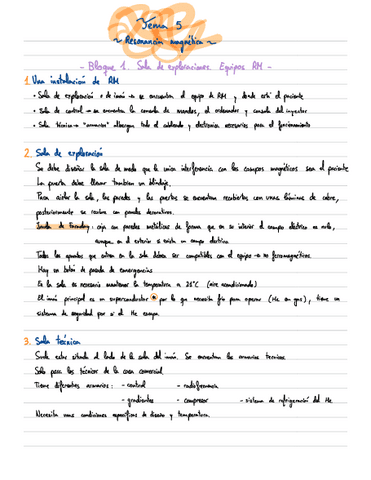 Tema 5
~ Resonancia magnética ~
- Bloque 1. Sala de exploraciones. Equipos RM -
1. Una instalación de RM
• Sala de exploración o de imán → se encuentra el equipo de RM y donde está el paciente
• Sala de control → se encuentra la consola de mandos, el ordenador y consola del inyector
• Sala técnica → "armarios" albergan todo el cableado y electrónica necesarios para el funcionamiento
2. Sala de exploración
Se debe diseñar la sala de modo que la única interferencia con los campos magnéticos sea el paciente
La puerta debe llevar también un blindaje.
Para aislar la sala, las paredes y las puertas se encuentran recubiertas con unas láminas de cobre,
posteriormente se recubre con paneles decorativos.
Jaula de Faraday: caja con paredes metálicas de forma que en su interior el campo eléctrico es nulo,
aunque en el exterior si exista un campo eléctrico.
Todos los aparatos que entren en la sala deben ser compatibles con el equipo → no ferromagnéticos.
Hay un botón de parada de emergencias
En la sala es necesario mantener la temperatura a 25°C (aire acondicionado)
El imán principal es un superconductor por lo que necesita frío para operar (He en gas), tiene un
sistema de seguridad por si el He escapa.
3. Sala técnica
Suele estar situada al lado de la sala del imán. Se encuentran los armarios técnicos.
Solo pasan los técnicos de la casa comercial
Tiene diferentes armarios: - control - radiofrecuencia
- gradientes - compresor - sistema de refrigeración del He
Necesita unas condiciones específicas de diseño y temperatura.